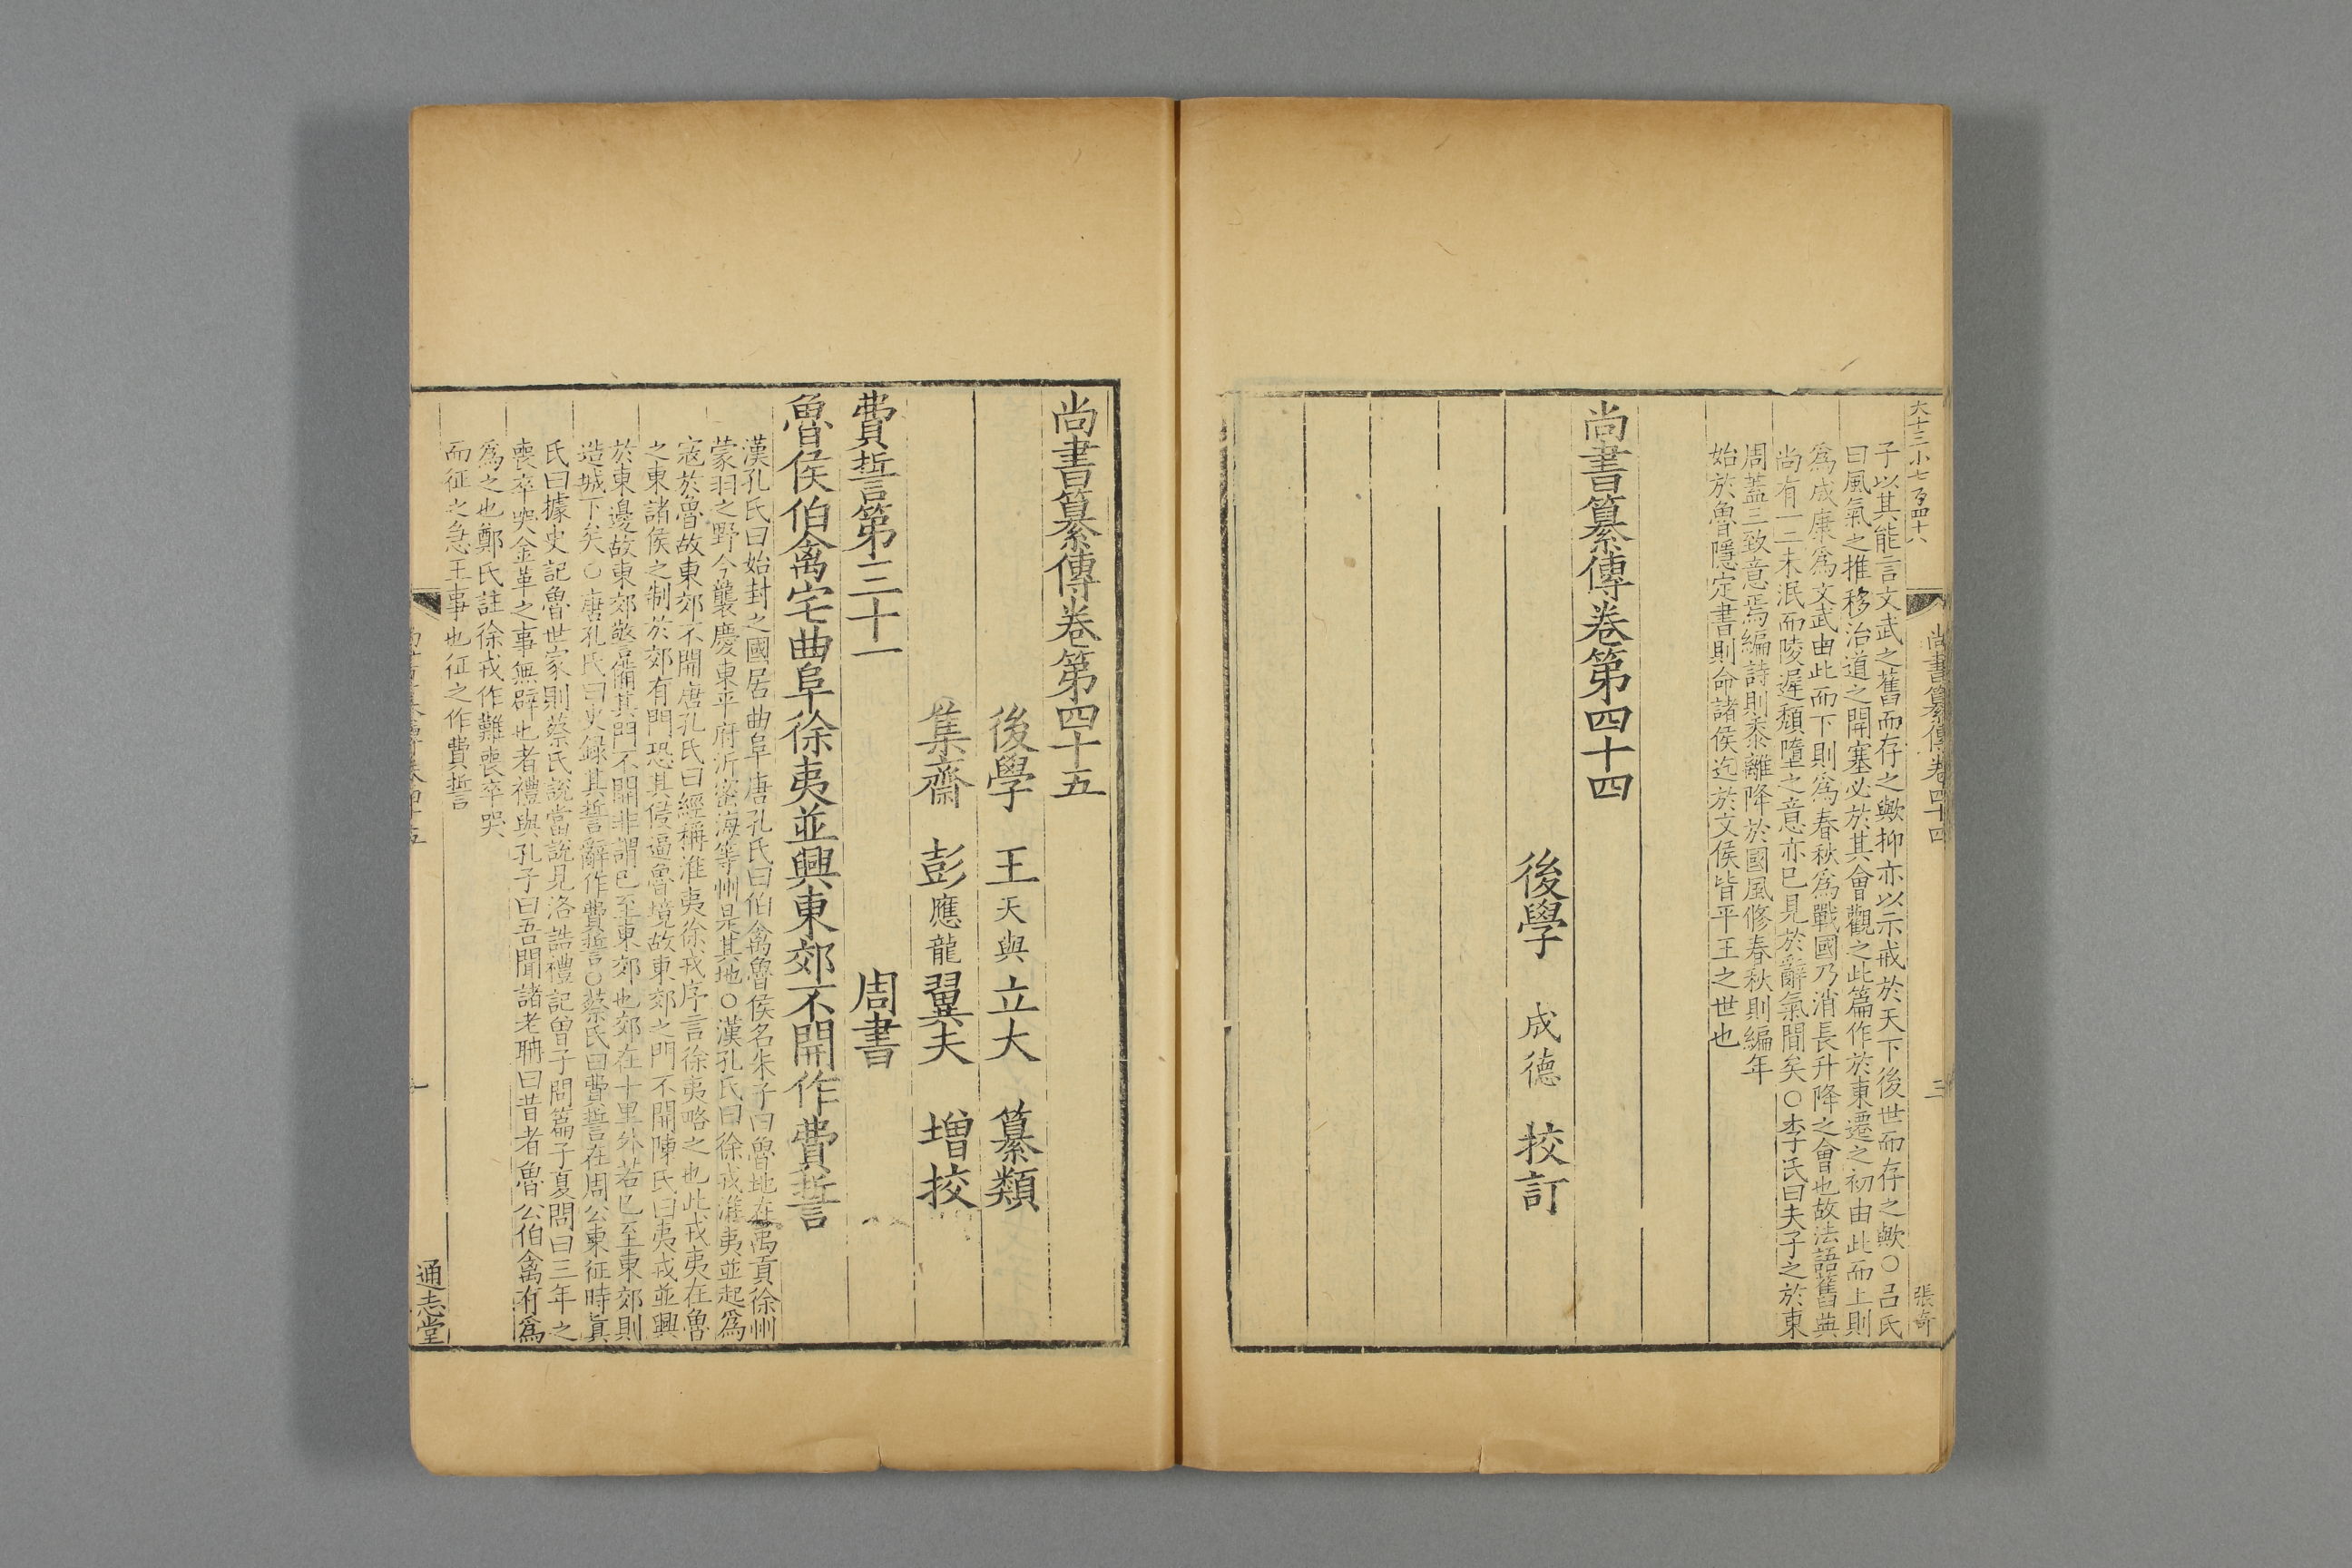 大十三小七百四十六
尚書纂傳卷四十四
三
張奇
子以其能言文武之舊而存之歟抑亦以示戒於天下後世而存之歟○呂氏
曰風氣之推移治道之開塞必於其會觀之此篇作於東遷之初由此而上則
為成康為文武由此而下則為春秋為戰國乃消長升降之會也故法語舊典
尚有一二未泯而陵遲頹墮之意亦已見於辭氣間矣○李氏曰夫子之於東
周蓋三致意焉編詩則黍離降於國風修春秋則編年
始於魯隱定書則命諸侯迄於文侯皆平王之世也
尚書纂傳卷第四十四
後學 成德 校訂
尚書纂傳卷第四十五
後學 王天與立大 纂類
集齋 彭應龍翼夫 增校
費誓第三十一 周書
魯侯伯禽宅曲阜徐夷並興東郊不開作費誓
漢孔氏曰始封之國居曲阜唐孔氏曰伯禽魯侯名朱子曰魯地在禹貢徐州
蒙羽之野今襲慶東平府沂密海等州是其地○漢孔氏曰徐戎淮夷並起為
寇於魯故東郊不開唐孔氏曰經稱淮夷徐戎序言徐夷略之也此戎夷在魯
之東諸侯之制於郊有門恐其侵逼魯境故東郊之門不開陳氏曰夷戎並興
於東邊故東郊警備其門不開非謂已至東郊也郊在十里外若已至東郊則
造城下矣○唐孔氏曰史錄其誓辭作費誓○蔡氏曰費誓在周公東征時真
氏曰據史記魯世家則蔡氏說當說見洛誥禮記曾子問篇子夏問曰三年之
喪卒哭金革之事無辟也者禮與孔子曰吾聞諸老聃曰昔者魯公伯禽有為
為之也鄭氏註徐戎作難喪卒哭
而征之急王事也征之作費誓
通志堂